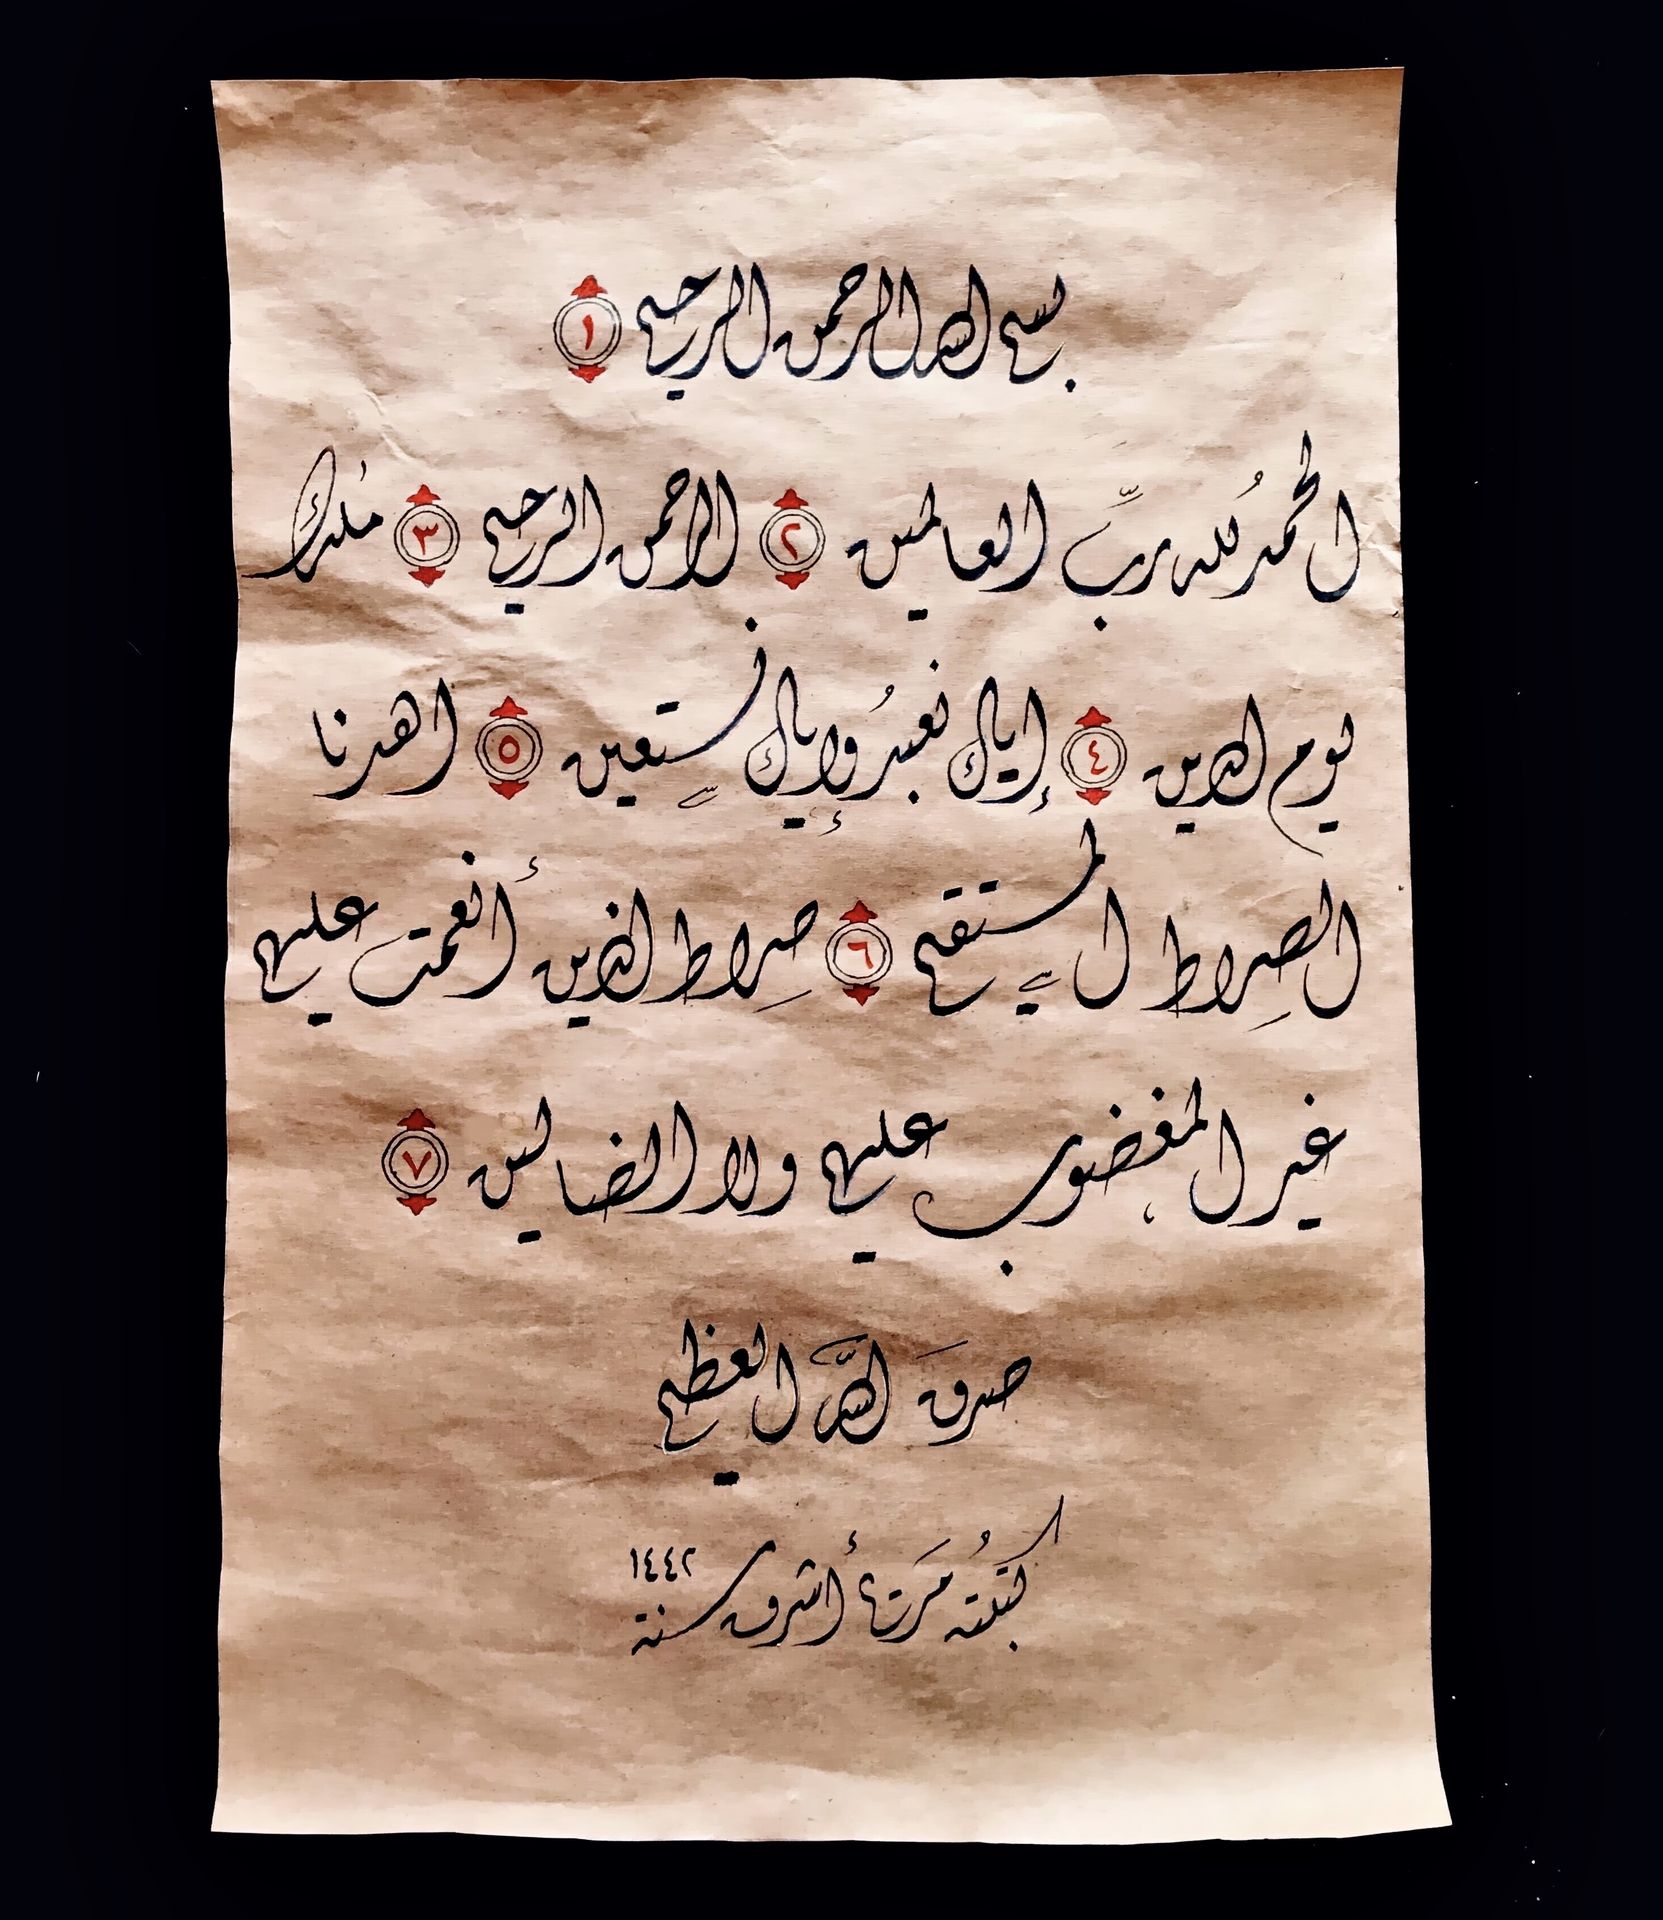 بسم الله الرحمن الرحيم ١
الحمدُ لله ربِّ العالمين ٢ الرحمن الرحيم ٣ مٰلك
يوم الدين ٤ إياك نعبدُ وإياك نستعين ٥ اهدنا
الصِراط المستقيم ٦ صِراط الذين أنعمت عليهم
غير المغضوب عليهم ولا الضالين ٧
صدَق اللَّه العظيم
كتبَتهُ مَرتا أشرف سنة ١٤٤٢